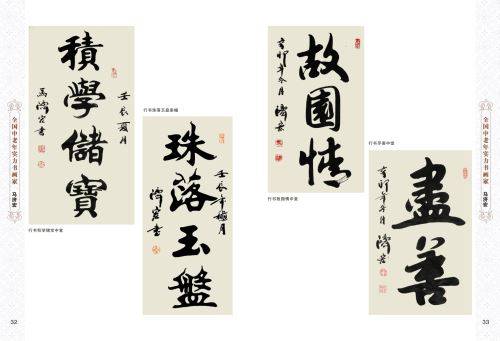 積學儲寶
壬辰夏月
馬濟宏書
行书积学储宝中堂
行书珠落玉盘条幅
珠落玉盤
壬辰年榴月
濟宏書
全国中老年实力书画家
马济宏
32
故園情
辛卯年冬月
濟宏
行书故园情中堂
行书尽善中堂
盡善
辛卯年冬月
濟宏
全国中老年实力书画家
马济宏
33